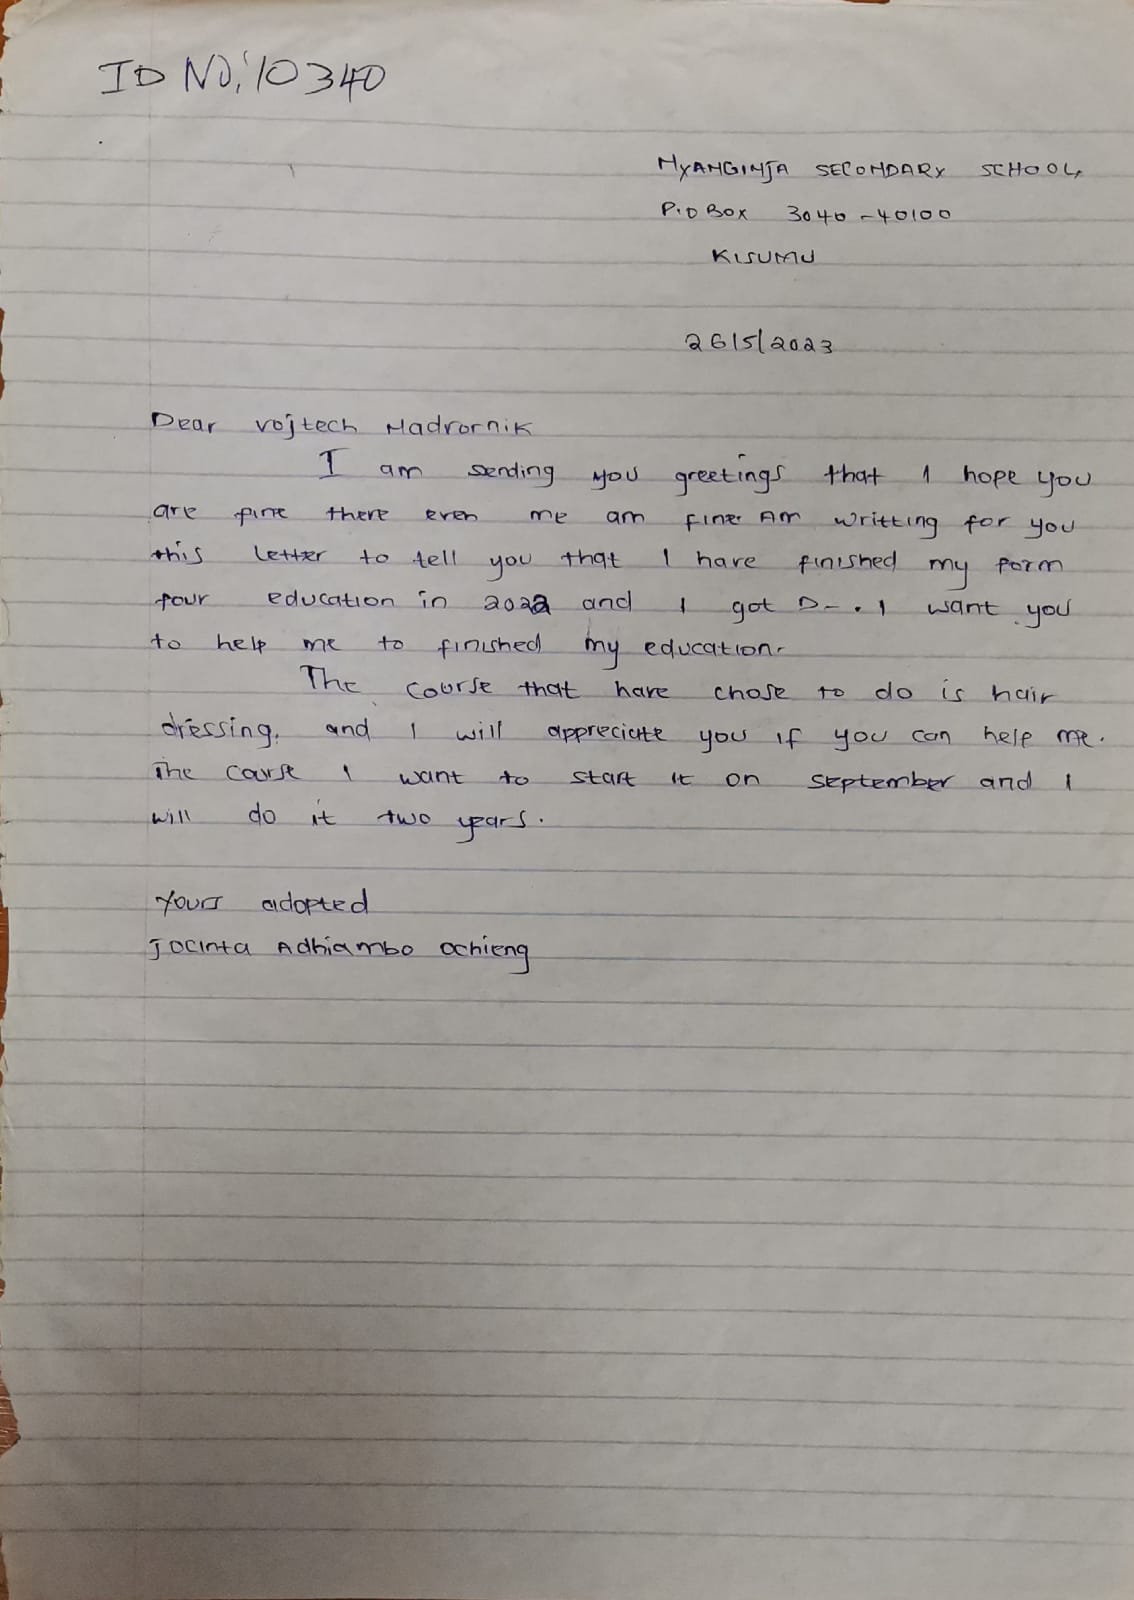 ID NO: 10340
NYANGINJA SECONDARY SCHOOL,
P.O BOX 3040 - 40100
KISUMU
26/5/2023
Dear Vojtech Nadrornik
I am sending you greetings that I hope you
are fine there even me am fine. Am writting for you
this letter to tell you that I have finished my form
four education in 2022 and I got D-. I want you
to help me to finished my education.
The course that have chose to do is hair
dressing, and I will appreciate you if you can help me.
The course I want to start it on september and I
will do it two years.
Yours adopted
Jocinta Adhiambo Ochieng